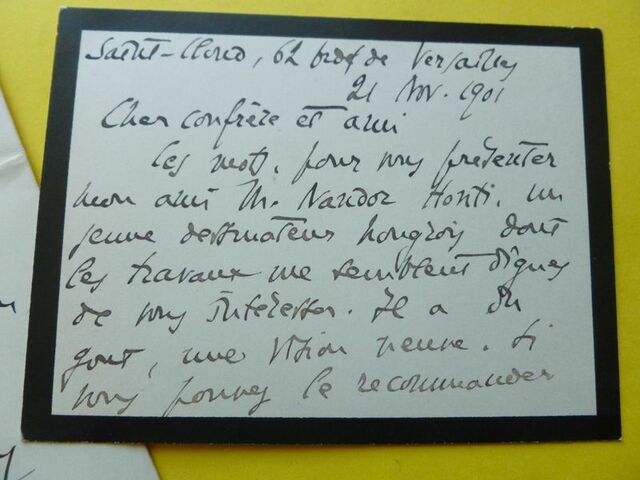 Saint-Cloud, 62 bvd de Versailles
21 Nov. 1901
Cher confrère et ami
Ces mots, pour vous présenter
mon ami M. Nandor Honti, un
jeune dessinateur hongrois dont
les travaux me semblent dignes
de vous intéresser. Il a du
gout, une vision neuve. Si
vous pouvez le recommander